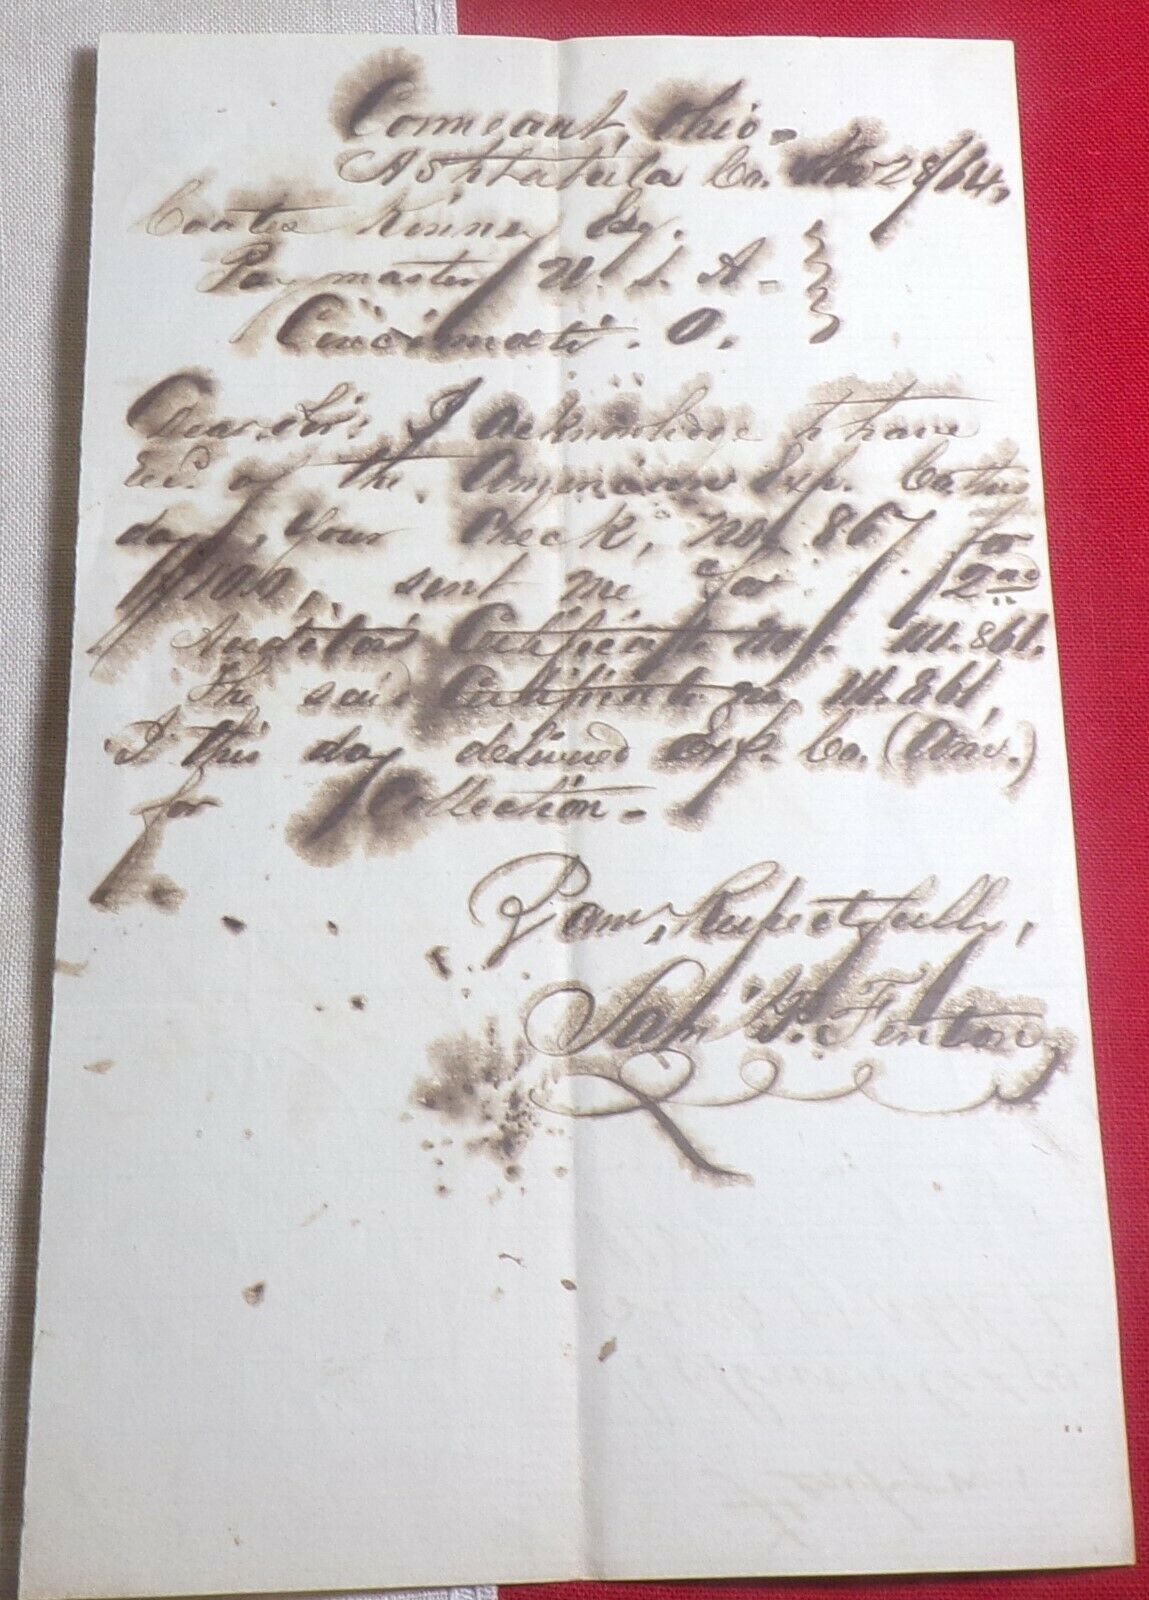 Conneaut, Ohio -
Ashtabula Co. 28/64,
Coates Kinney Esq.
Paymaster U. S. A -
Cincinnati. O.
Dear Sir, I acknowledge to have
Rec'd. of the American Exp. Co. this
day, your Check, No. 867 for
sent me for 2nd
Auditor's Certificate No. 111.861.
The said Certificate 111.861,
I this day delivered Exp. Co. (Am.)
for Collection. -
I am, Respectfully,
Sam'l P. Fenton